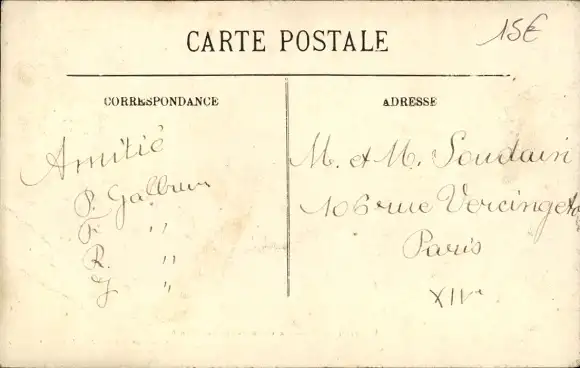 CARTE POSTALE
15€
CORRESPONDANCE
Amitié
P. Galbrun
F. "
R. "
J "
ADRESSE
M. et M. Soudain
106 rue Vercingeto
Paris
XIVe